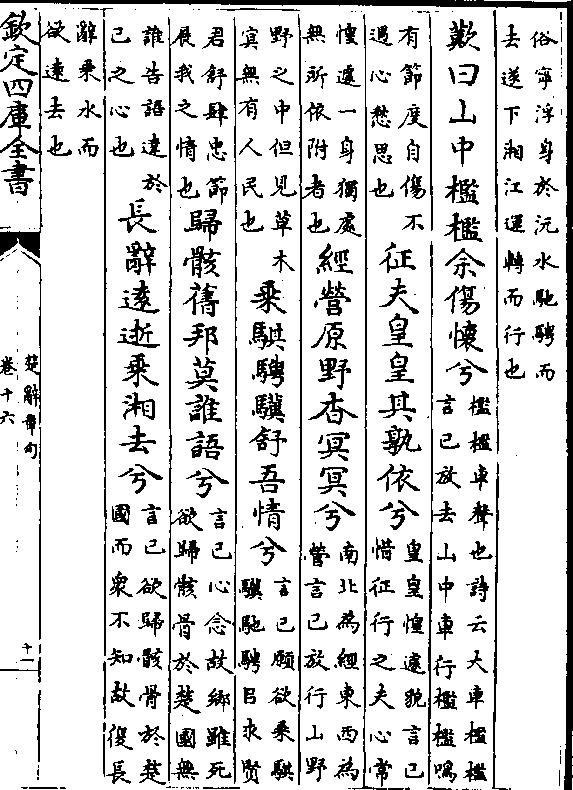 俗寧浮身於沅水馳騁而
去遂下湘江運轉而行也
歎曰山中檻檻余傷懷兮檻檻車聲也詩云大車檻檻
言已放去山中車行檻檻鳴
有節度自傷不
遇心愁思也
征夫皇皇其孰依兮皇皇惶遽貌言已
惜征行之夫心常
惶遽一身獨處
無所依附者也
經營原野杳冥冥兮南北為經東西為
營言已放行山野
野之中但見草木
冥無有人民也
乘騏騁驥舒吾情兮言已願欲乘騏
驥馳騁以求賢
君舒肆忠節
展我之情也
歸骸舊邦莫誰語兮言已心念故鄉雖死
欲歸骸骨於楚國無
誰告語達於
已之心也
長辭遠逝乘湘去兮言已欲歸骸骨於楚
國而衆不知故復長
辭乘水而
欲遠去也
欽定四庫全書
楚辭章句
卷十六
十一